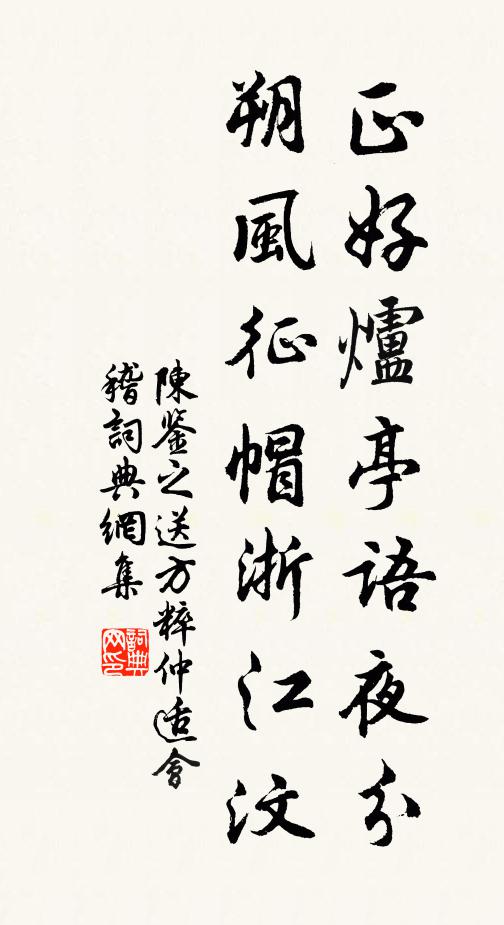 正好爐亭語夜分
朔風征帽浙江汶
陳鑒之送方粹仲适會
稽詞典網集
詞典网印